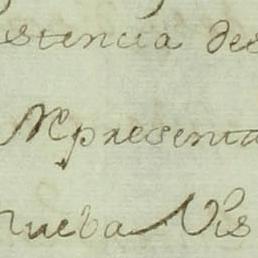 istencia des
Representa
rueba Vis